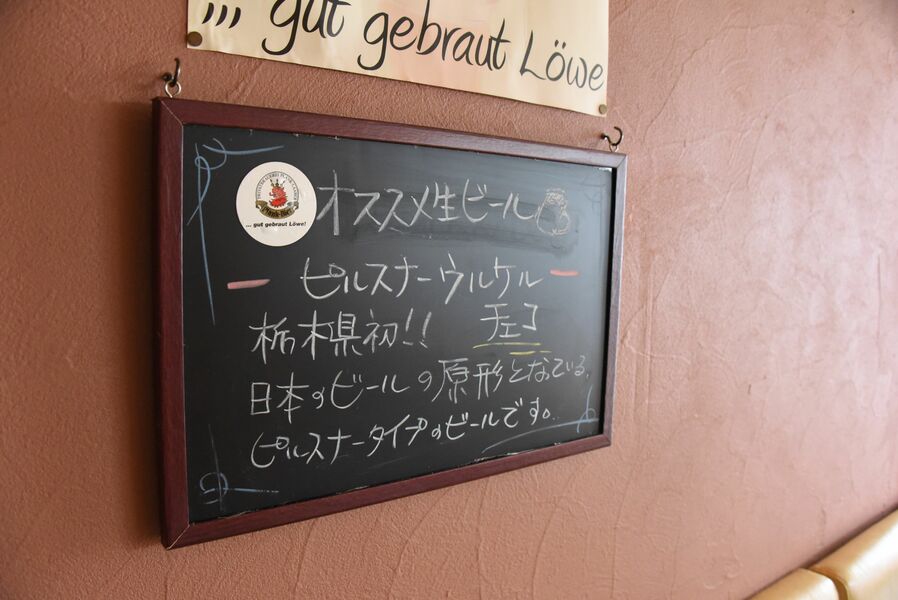 ... gut gebraut Löwe
Plank-Bier
... gut gebraut Löwe!
オススメ生ビール
ー ピルスナーウルケル ー
栃木県初!! チェコ
日本のビールの原形となている。
ピルスナータイプのビールです。